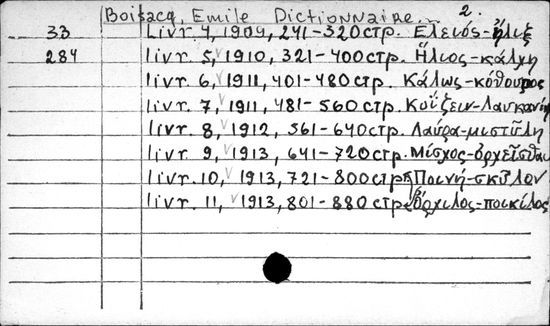 Boisacq, Emile Dictionnaire. 2.
33 livr. 4, 1909, 241-320 стр. Ἐλειός-ἧλιξ
284 livr. 5, 1910, 321-400 стр. Ἥλιος-κάλχη
livr. 6, 1911, 401-480 стр. Κάλως-κόθουρος
livr. 7, 1911, 481-560 стр. Κοΐζειν-λαυκανίη
livr. 8, 1912, 561-640 стр. Λαύρα-μιστῦλη
livr. 9, 1913, 641-720 стр. Μίσχος-ὀρχεῖσθαι
livr. 10, 1913, 721-800 стр. Ποινή-σκῦλον
livr. 11, 1913, 801-880 стр. Ὄρχιλος-ποικίλος